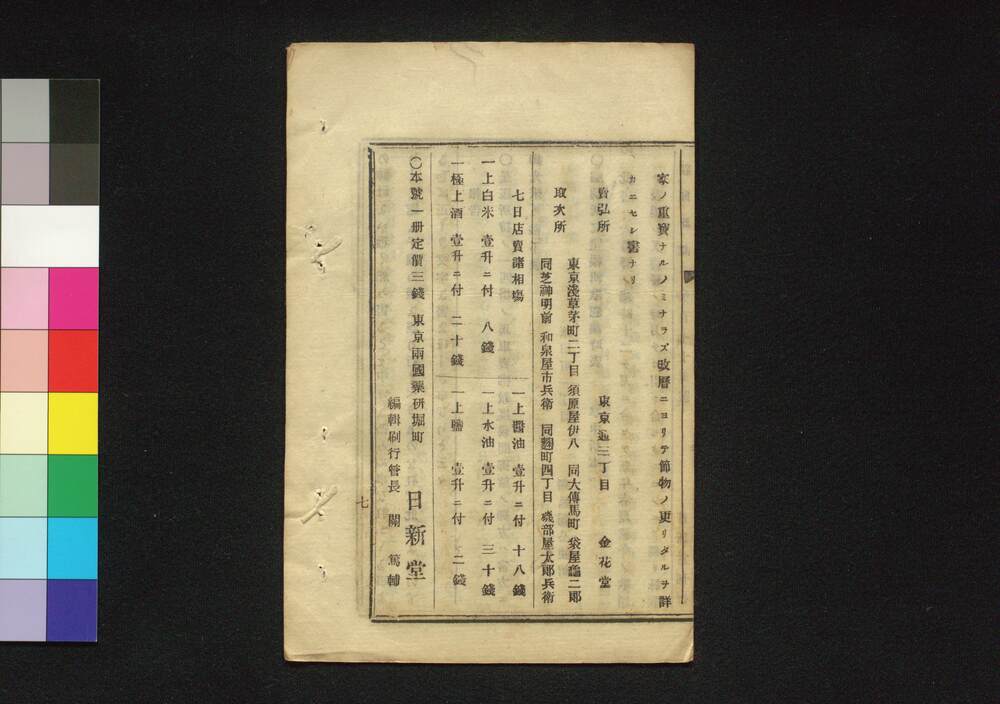 家ノ重寶ナルノミナラズ改暦ニヨリテ節物ノ更リタルヲ詳
カニセシ書ナリ
賣弘所 東京通三丁目 金花堂
東京淺草茅町二丁目 須原屋伊八 同大傳馬町 袋屋龜二郎
取次所
同芝神明前 和泉屋市兵衛 同麹町四丁目 磯部屋太郎兵衛
七日店賣諸相塲
一上醤油 壹升ニ付 十八錢
一上白米 壹升ニ付 八錢
一上水油 壹升ニ付 三十錢
一極上酒 壹升ニ付 二十錢
一上鹽 壹升ニ付 二錢
〇本號一册定價三錢 東京兩國藥研堀町 日新堂
編輯刷行管長 關 篤輔
七